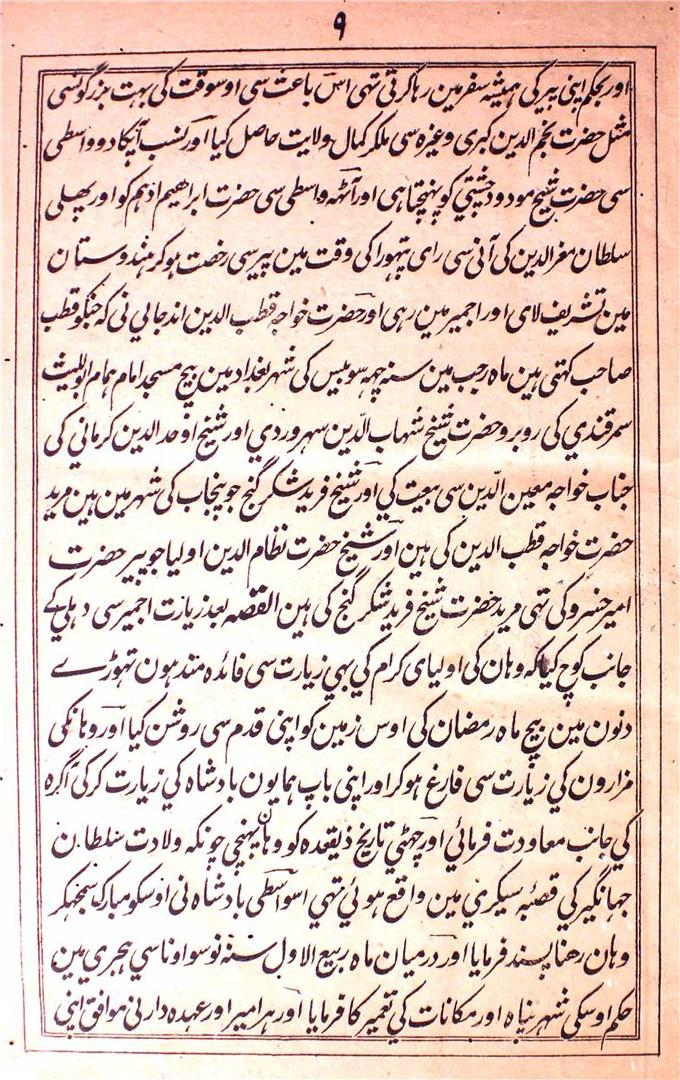 ۹
اور بحکم اپنی پیر کی ہمیشہ سفر مین رہا کرتی تہی اس باعث سی اوسوقت کی بہت بزرگونسی
مثل حضرت نجم الدین کبری وغیرہ سی ملکر کمال ولایت حاصل کیا اور نسب آپکا دو واسطی
سی حضرت شیخ مودود چشتي کو پہنچتا ہی اور آٹہہ واسطی سی حضرت ابراھیم ادہم کو اور پھلی
سلطان معزالدین کی آنی سی رای پتہورا کی وقت مین پیر سی رخصت ہوکر ہندوستان
مین تشریف لای اور اجمیر مین رہی اور حضرت خواجہ قطب الدین اندجالی نی کہ جنکو قطب
صاحب کہتی ہین ماہ رجب مین سنہ چہہ سو بیس کی شہر بغداد مین بیچ مسجد امام ہمام ابواللیث
سمرقندي کی روبرو حضرت شیخ شہاب الدین سہروردي اور شیخ اوحد الدین کرماني کی
جناب خواجہ معین الدین سی بیعت کي اور شیخ فرید شکر گنج جو پنجاب کی شہر مین ہین مرید
حضرت خواجہ قطب الدین کی ہین اور شیخ حضرت نظام الدین اولیا جو پیر حضرت
امیر خسرو کی تہی مرید حضرت شیخ فرید شکر گنج کی ہین القصہ بعد زیارت اجمیر سی دہلي کے
جانب کوچ کیا کہ وہان کی اولیای کرام کي بہي زیارت سی فائدہ مند ہون تہوڑے
دنون مین بیچ ماہ رمضان کی اوس زمین کو اپنی قدم سی روشن کیا اور وہانکی
مزارون کي زیارت سی فارغ ہوکر اور اپنی باپ ہمایون بادشاہ کي زیارت کرکی آگرہ
کي جانب معاودت فرمائي اور چھٹي تاریخ ذیقعدہ کو وہان پہنچي چونکہ ولادت سلطان
جہانگیر کي قصبۂ سیکري مین واقع ہوئي تہي اسواسطی بادشاہ نی اوسکو مبارک سمجھکر
وہان رھنا پسند فرمایا اور درمیان ماہ ربیع الاول سنہ نوسو اوناسي ہجري مین
حکم اوسکی شہر پناہ اور مکانات کي تعمیر کا فرمایا اور ہر امیر اور عہدہ دار نی موافق اپنی